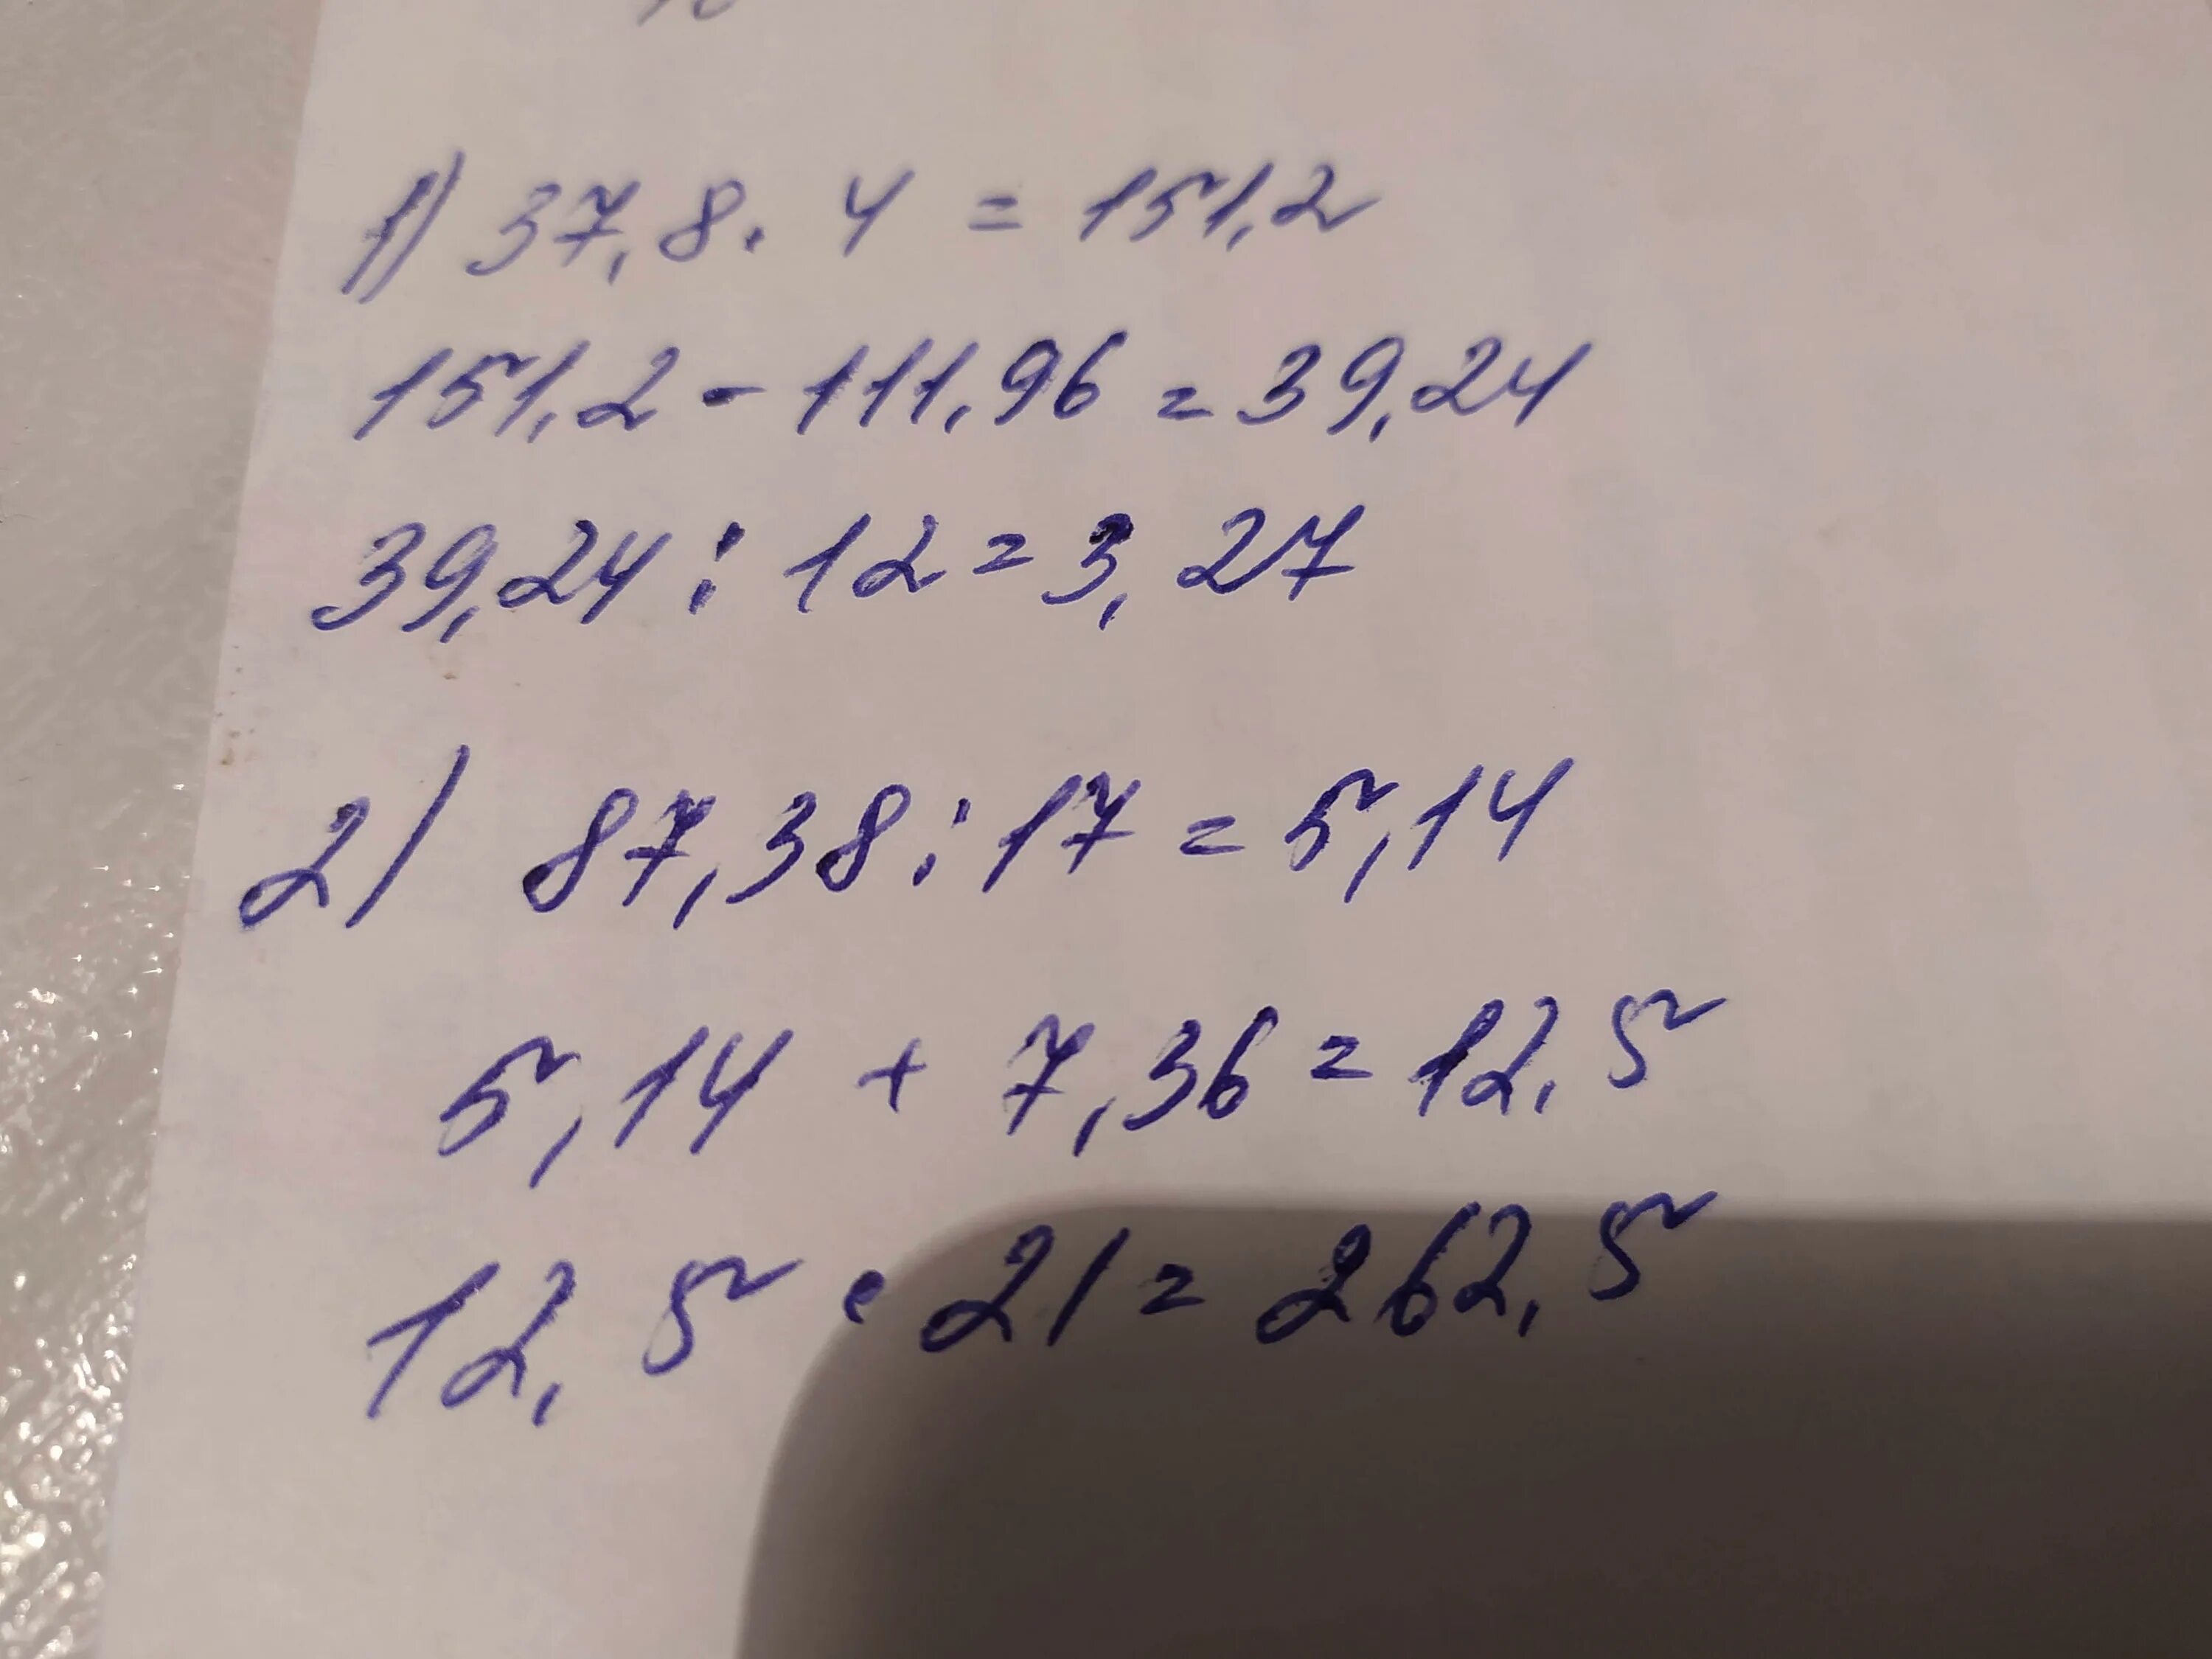 1) 37,8 · 4 = 151,2
151,2 - 111,96 = 39,24
39,24 : 12 = 3,27
2) 87,38 : 17 = 5,14
5,14 + 7,36 = 12,5
12,5 · 21 = 262,5